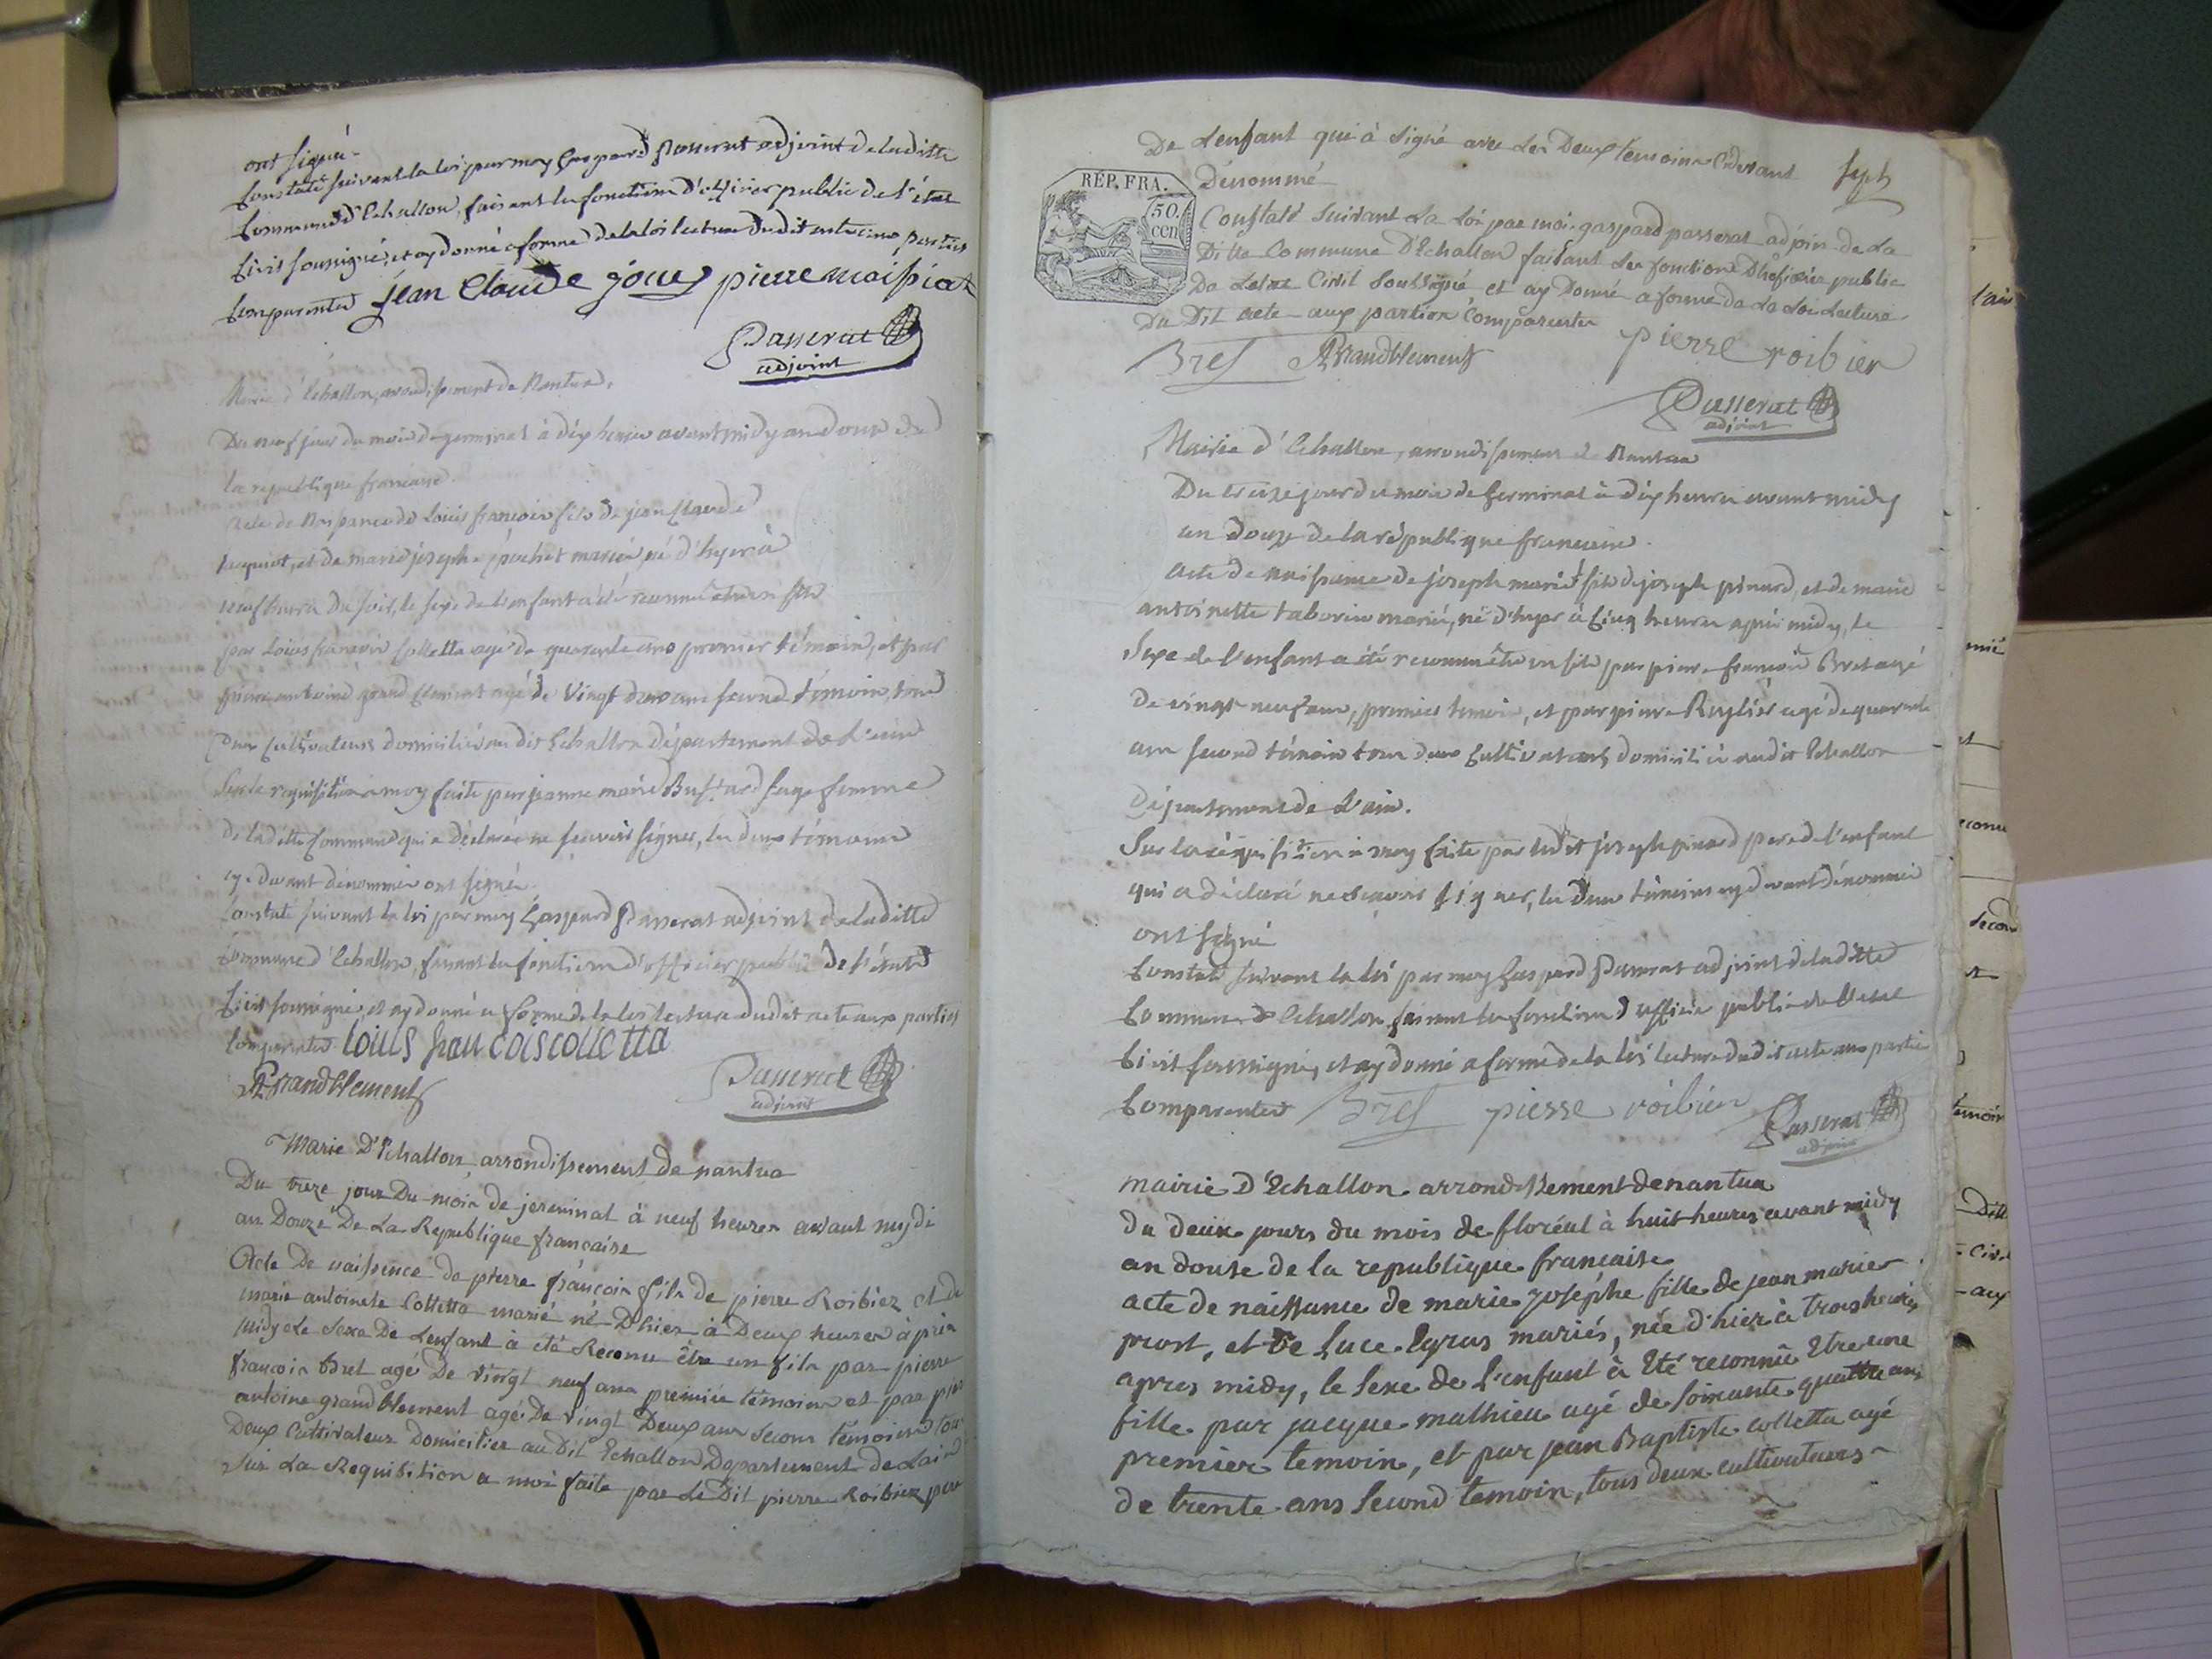 ont signé.
Constaté suivant la loi par moy Gaspard Passerat adjoint de laditte
Commune d'Echallon, faisant les fonctions d'officier public de l'état
Civil soussigné, et ay donné a forme de la loi lecture dudit acte aux parties
Comparentes jean Claude joue pierre maissiat
Passerat
adjoint
Mairie d'Echallon, arrondissement de Nantua.
Du neuf jour du mois de germinal à dix heures avant midy an douze de
la republique francaise
acte de Naissance de Louis francois fils de jean Claude
et de marie josephe pochet mariés né d'hyer à
neuf heures du soir, le sexe de l'enfant a été reconnu être un fils
par Louis francois Colletta agé de quarante ans premier témoin, et par
pierre antoine grand Clement agé de vingt deux ans second témoin, tous
deux cultivateurs domiciliés au dit Echallon département de l'ain
Sur la requisition a moy faite par jeanne marie Bussard sage femme
de laditte Commune qui a déclarée ne scavoir signer, les deux témoins
cy devant dénommés ont signés
Constaté suivant la loi par moy Gaspard Passerat adjoint de laditte
Commune d'Echallon, faisant les fonctions d'officier public de l'état
Civil soussigné, et ay donné a forme de la loi lecture dudit acte aux parties
Comparentes Louis francois colletta
PA grandClement
Passerat
adjoint
Marie D'Echallon arrondissement de nantua
Du treze jour Du mois de jerminal à neuf heures avant mydi
an Douze De La Republique francaise
Acte De naissence de pierre françois fils de pierre Roibiez et de
marie antoinete Colletta marié né D'hier à Deux heures àpris
midy Le Sexe De Lenfant à été Reconu être un fils par pierre
françois Bret agé De vingt neuf ans premiés temoins et par pier
antoine grand Clement agé De vingt Deux ans Second temoins tou
Deux Cultivateur Domicilier au Dit Echallon Departement de Lain
Sur La Requisition a moi faite par Le Dit pierre Roibiez per
De Lenfant qui à Signé avec Les Deux temoins Cidevant
RÉP. FRA.
50.
cen
Dénommé
Constaté Suivant La Loi par moi gaspard passerat adjoin de La
Ditte Commune D'Echallon faisant Les fonctions D'hoficié public
De Létat Civil Soussigné et ay Donné a forme de La Loi Lecture
Du Dit acte aux parties Comparentes pierre roibier
Bret PA grandClement
Passerat
adjoint
Mairie d'Echallon, arrondissement de Nantua
Du treize jour du mois de Germinal à dix heures avant midy
an douze de la république francaise.
acte de naissance de joseph marie fils de joseph pinard, et de marie
antoinette tabouin mariés, né d'hyer à Cinq heures après midy, le
Sexe de l'enfant a été reconnu être un fils par pierre francois Bret agé
de vingt neuf ans, premier temoin, et par pierre agé de quarante
ans second témoin tous deux Cultivateurs domiciliés audit Echallon
Département de L'ain.
Sur la réquisition à moy faite par ledit joseph pinard pere de l'enfant
qui a déclaré ne scavoir signer, les deux témoins cy devant dénommés
ont signé
Constaté suivant la loi par moy Gaspard Passerat adjoint de laditte
Commune d'Echallon, faisant les fonctions d'officier public de l'état
Civil soussigné, et ay donné a forme de la loi lecture dudit acte aux parties
Comparentes Bret pierre roibier Passerat
adjoint
mairie D'Echallon arrondissement de nantua
du deux jours du mois de floréal à huit heures avant midy
an douse de la republique francaise
acte de naissance de marie josephe fille de jean marie
prost, et de Luce Egraz mariés, née d'hier à trois heures
apres midy, le Sexe de L'enfant à Eté reconnu Etre une
fille par jacque mathieu agé de soixante quattre ans
premier temoin, et par jean Baptiste colletta agé
de trente ans Second temoin, tous deux cultivateurs